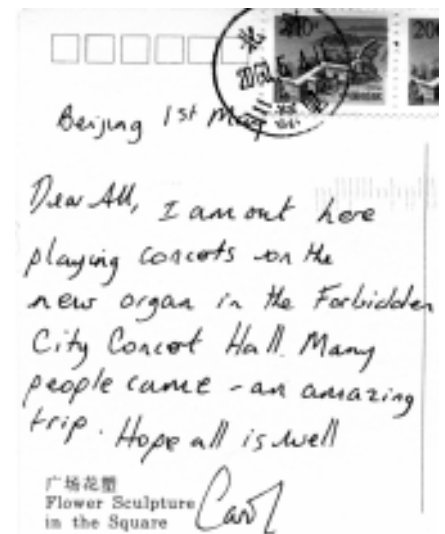 Beijing 1st May
Dear All, I am out here
playing concerts on the
new organ in the Forbidden
City Concert Hall. Many
people came - an amazing
trip. Hope all is well
广场花塑
Flower Sculpture
in the Square
Carol